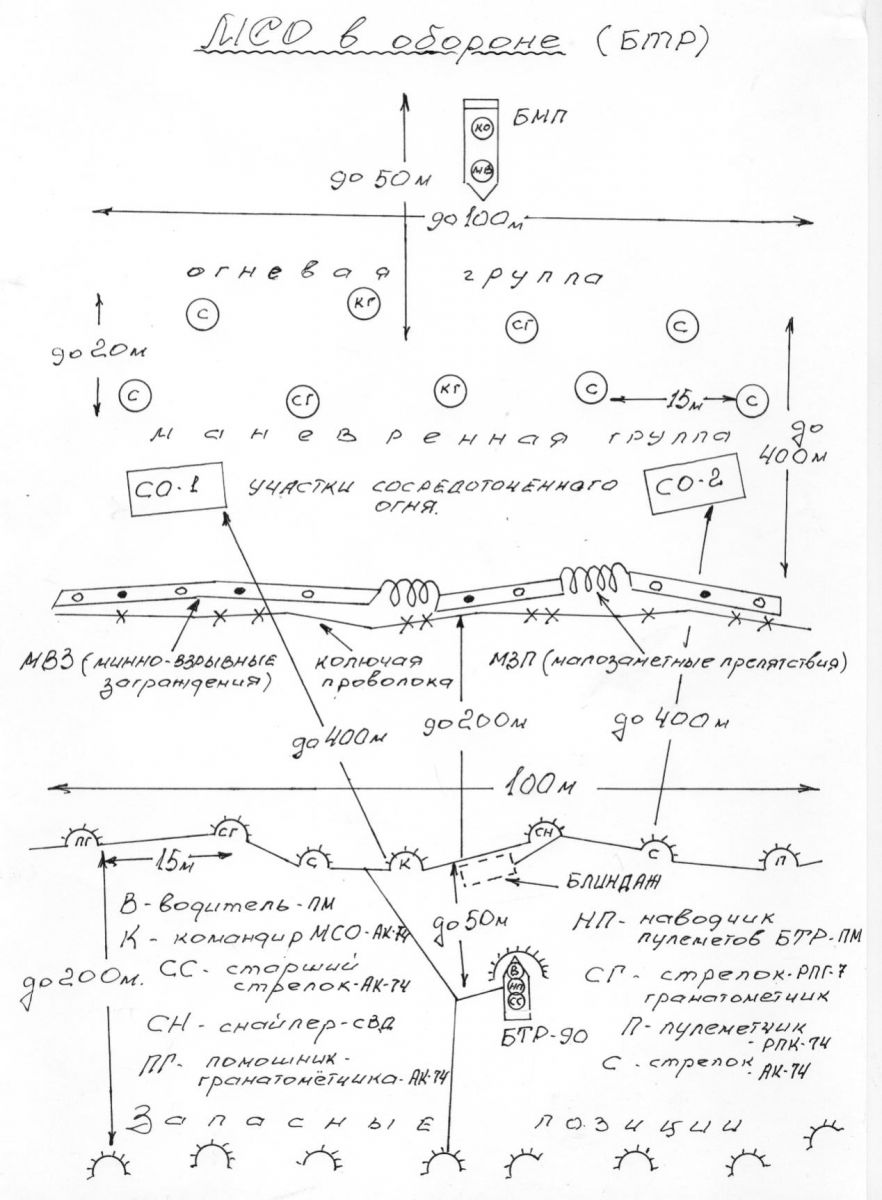 МСО в обороне (БТР)
БМП
КО
МВ
до 50м
до 100м
огневая группа
С
КГ
СГ
С
до 20м
С
СГ
КГ
С
15м
С
маневренная группа
до 400м
СО-1
участки сосредоточенного
огня.
СО-2
МВЗ (минно-взрывные
заграждения)
колючая
проволока
МЗП (малозаметные препятствия)
до 400м
до 200м
до 400м
100м
ПГ
СГ
С
К
СН
С
П
15м
БЛИНДАЖ
В - водитель - ПМ
К - командир МСО - АК-74
СС - старший
стрелок - АК-74
СН - снайпер - СВД
ПГ - помошник -
гранатомётчика - АК-74
до 200м.
до 50м
В
НП
СС
БТР-90
НП - наводчик
пулеметов БТР - ПМ
СГ - стрелок - РПГ-7
гранатометчик
П - пулеметчик
- РПК-74
С - стрелок
- АК-74
Запасные позиции